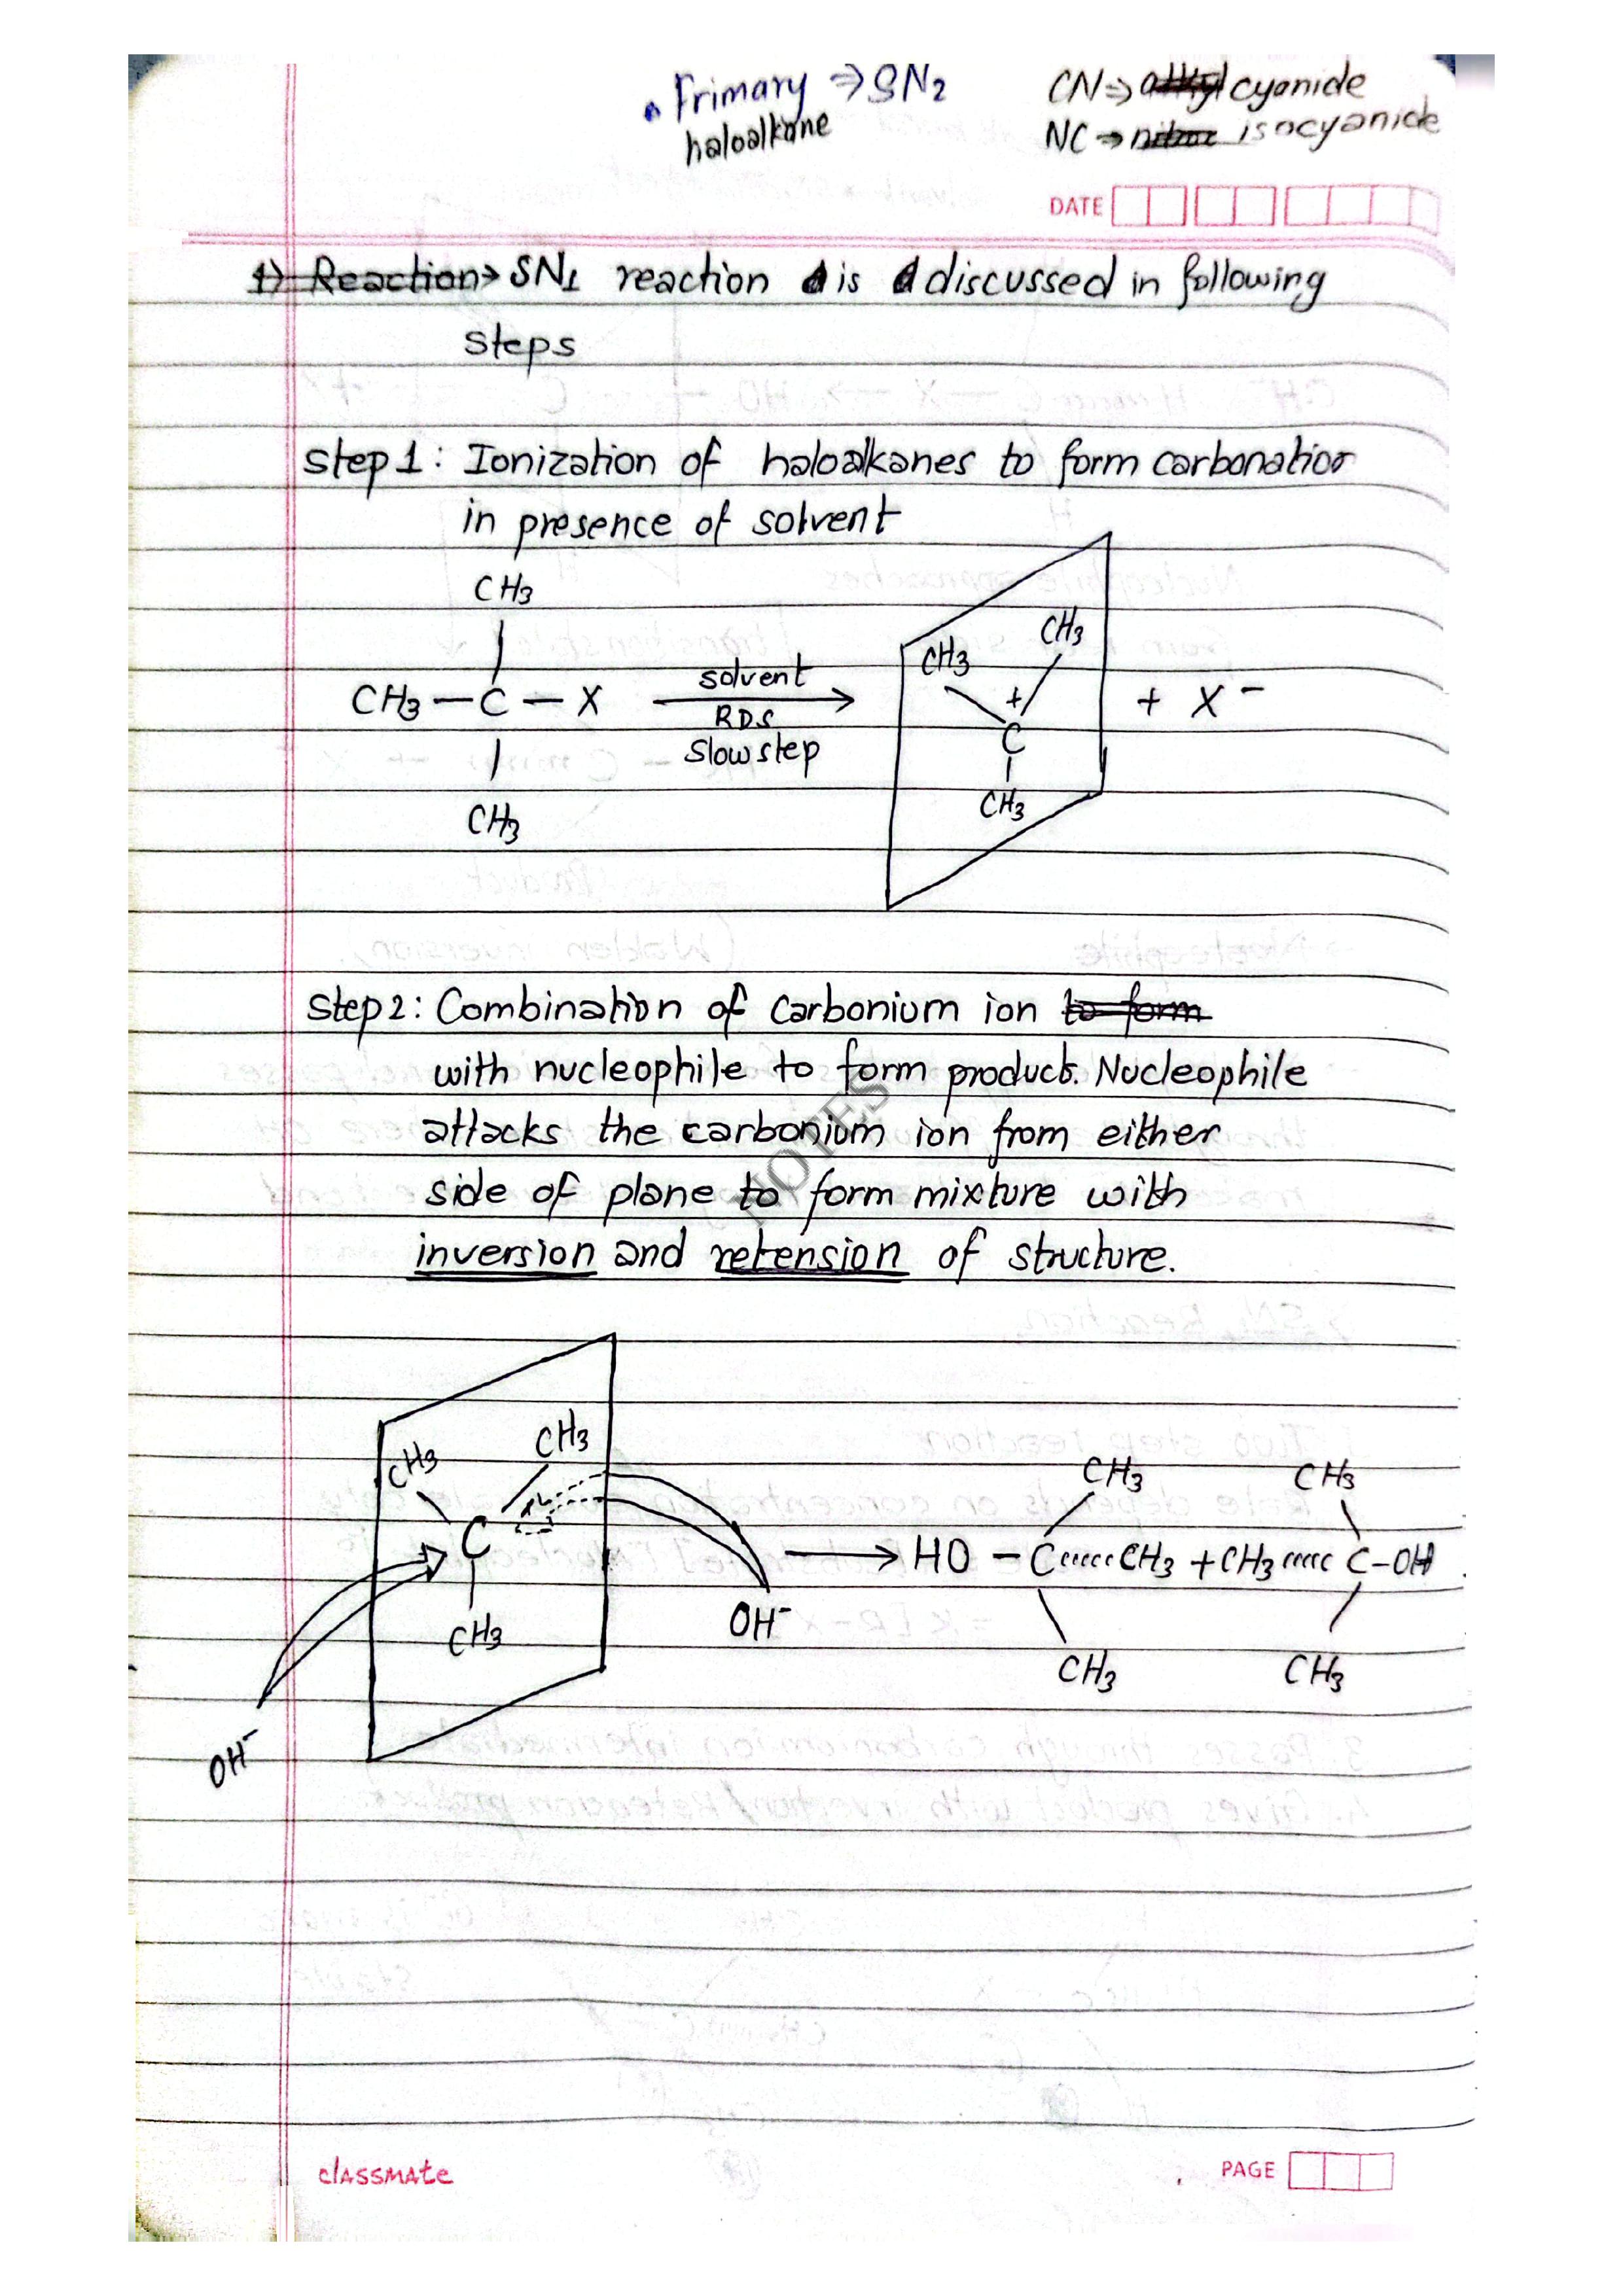 Primary → SN2
haloalkane
CN ⇒ cyanide
NC → isocyanide
DATE
1) Reaction → SN1 reaction is discussed in following
steps
step 1: Ionization of haloalkanes to form carbonation
in presence of solvent
CH3
CH3 CH3
CH3 — C — X solvent + + X⁻
RDS C
slow step
CH3 CH3
step 2: Combination of carbonium ion to form
with nucleophile to form product. Nucleophile
attacks the carbonium ion from either
side of plane to form mixture with
inversion and retension of structure.
NOTES
CH3 CH3
CH3 CH3
C → HO — C CH3 + CH3 C — OH
CH3 OH⁻
CH3 CH3
OH⁻
classmate
PAGE